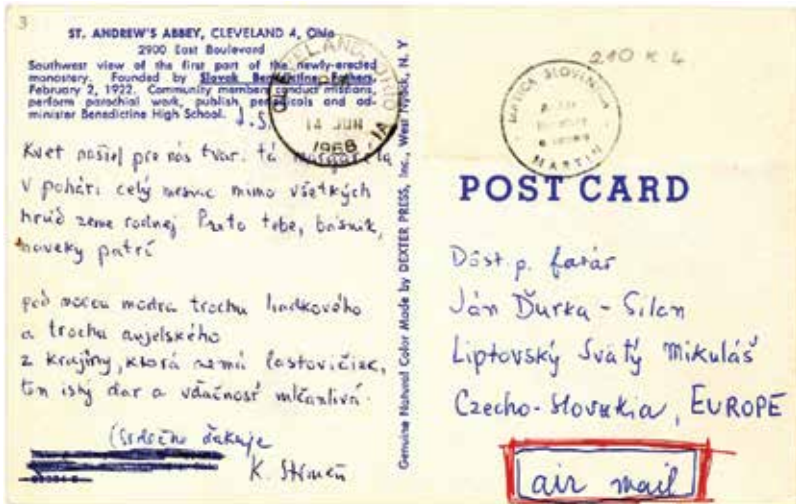 3
ST. ANDREW'S ABBEY, CLEVELAND 4, Ohio
2900 East Boulevard
Southwest view of the first part of the newly-erected
monastery. Founded by Slovak Benedictine Fathers,
February 2, 1922. Community members conduct missions,
perform parochial work, publish periodicals and ad-
minister Benedictine High School.
J.S.
CLEVELAND, OHIO
14 JUN
1968
Kvet našiel pre nás tvar: tá
v pohári celý mesiac mimo všetkých
hrúd zeme rodnej Preto tebe, básnik,
naveky patrí
pod nocou modrá trochu
a trochu anjelského
z krajiny, ktorá nemá lastovičiek,
ten istý dar a vďačnosť mlčanlivá.
Srdečne ďakuje
K. Strmeň
Genuine Natural Color Made by DEXTER PRESS, Inc., West Nyack, N. Y
210 K 4
MATICA SLOVENSKÁ
MARTIN
POST CARD
Dôst p. farár
Ján Ďurka - Silan
Liptovský Svätý Mikuláš
Czecho-Slovakia, EUROPE
air mail